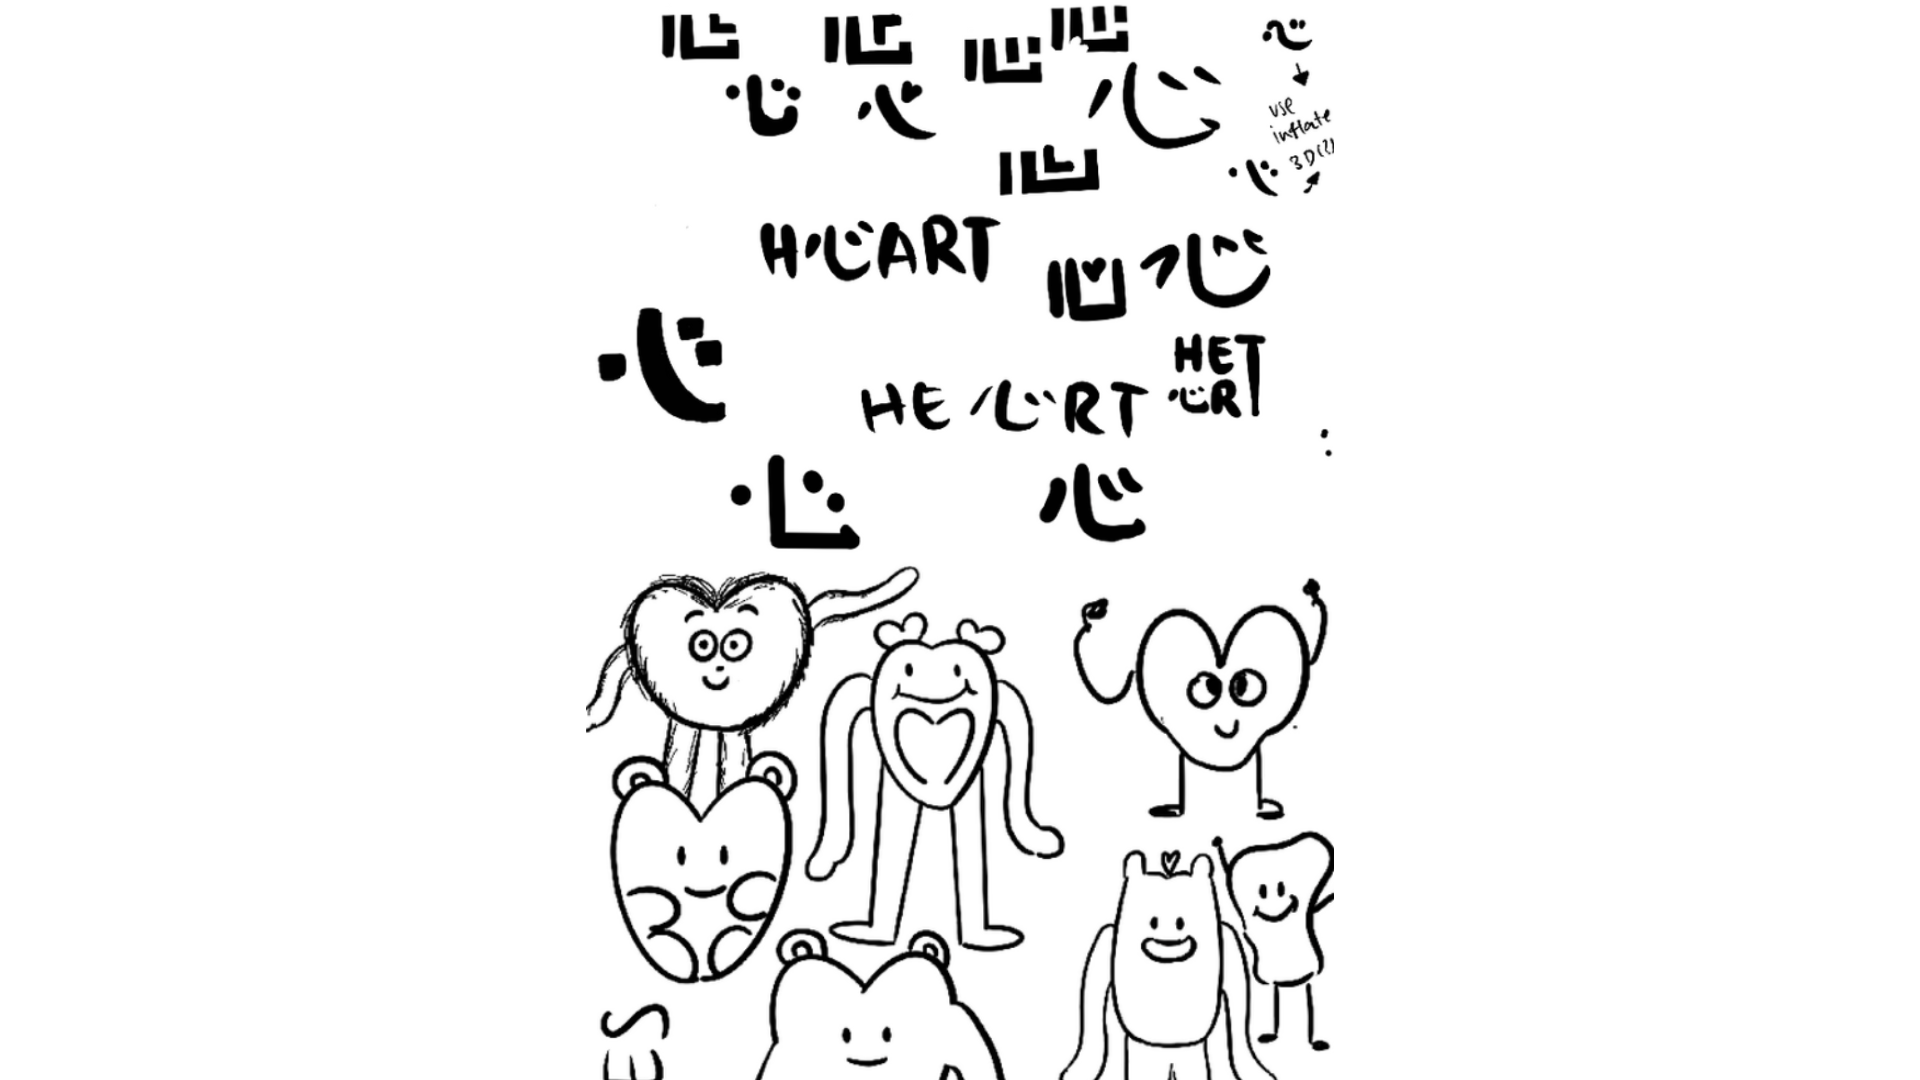 心 心 心 心 心
心 心 心
use
inflate
3D(?)
心 心
H心ART
心 心
心
HET
HE心RT 心R
心 心